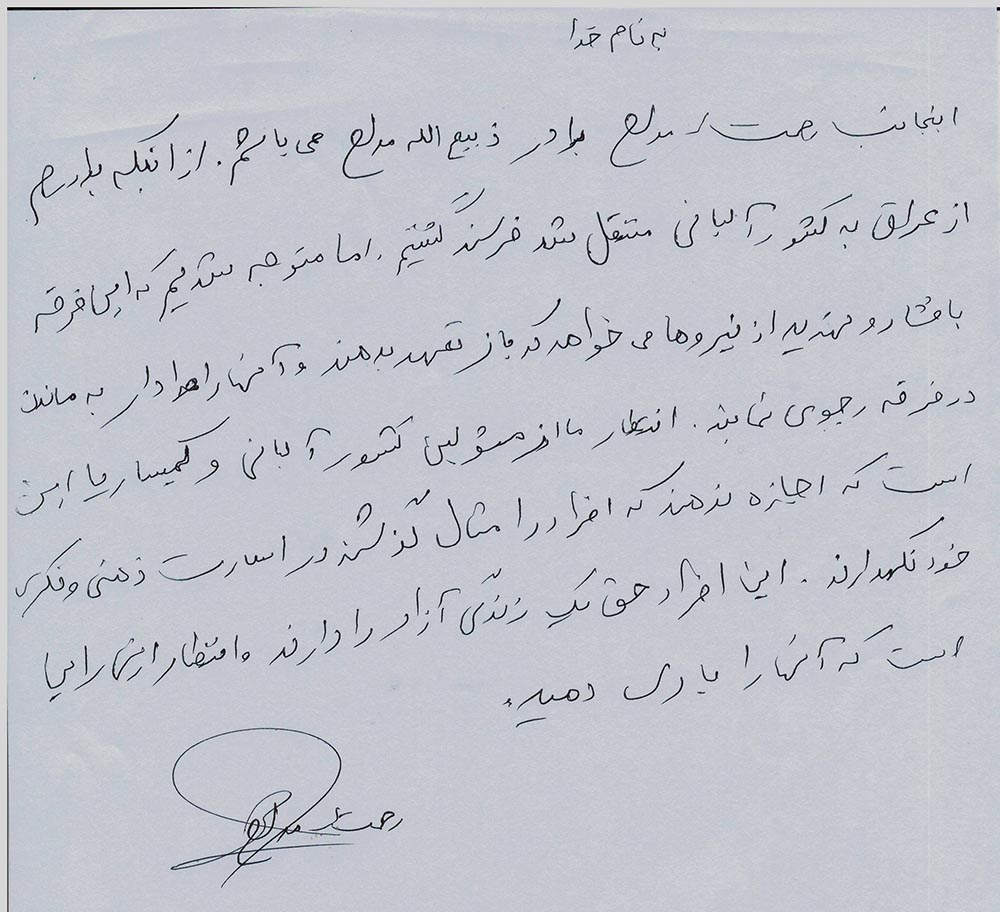 به نام خدا
اینجانب رحمت مداح برادر ذبیح الله مداح می باشم. از اینکه برادرم
از عراق به کشور آلبانی منتقل شد خرسند گشتیم. اما متوجه شدیم که این فرقه
با فشار و تهدید از نیروها می خواهد که باز تعهد بدهند و آنها را وادار به ماندن
در فرقه رجوی نمایند. انتظار ما از مسئولین کشور آلبانی و کمیساریا این
است که اجازه ندهند که افراد را مثال گذشته در اسارت ذهنی و فکری
خود نگهدارند. این افراد حق یک زندگی آزاد را دارند و انتظار از شما
است که آنها را یاری دهید.
رحمت مداح